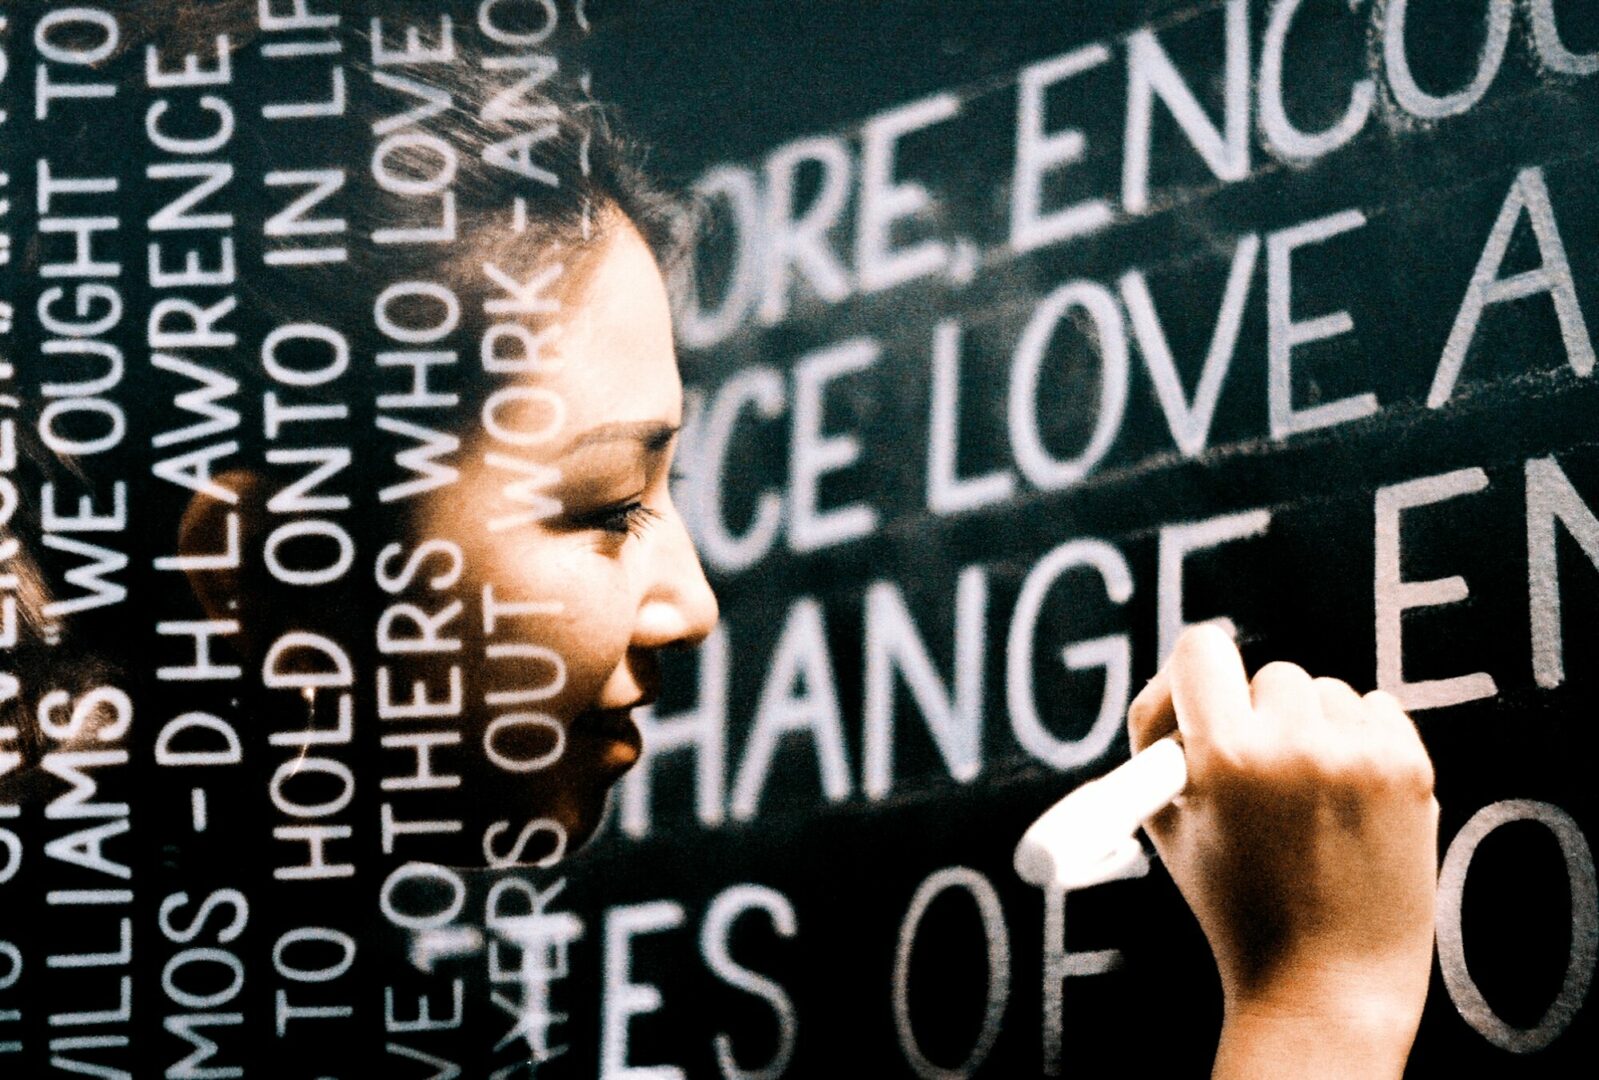 WILLIAMS "WE OUGHT TO
MOS" - D.H. LAWRENCE
TO HOLD ONTO IN LIF
OTHERS WHO LOVE
OUT WORK - ANO
ORE, ENCOU
CE LOVE A
HANGE EN
ES OF O